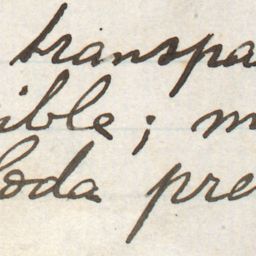 transpa
ible; m
oda pre